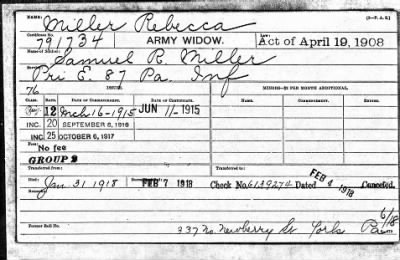 NAME: Miller Rebecca (3—P. A. S.)
Certificate No. 791734 ARMY WIDOW. LAW: Act of April 19, 1908
Name of Soldier: Samuel R. Miller
Service: Pri E. 87 Pa. Inf
76 ISSUE. MINORS—$2 PER MONTH ADDITIONAL.
CLASS. RATE. DATE OF COMMENCEMENT. DATE OF CERTIFICATE. NAME. COMMENCEMENT. ENDING.
12 Mch 16-1915 JUN 11-1915
INC. 20 SEPTEMBER 8, 1916
INC. 25 OCTOBER 6, 1917
Fees: No fee
GROUP 2
Transferred from: Transferred to:
Died: Jan 31 1918 FEB 7 1918 Check No. 6139274 Dated FEB 4 1918 Canceled.
Remarks:
6/18
Former Roll No. 337 No. Newberry St York Pa